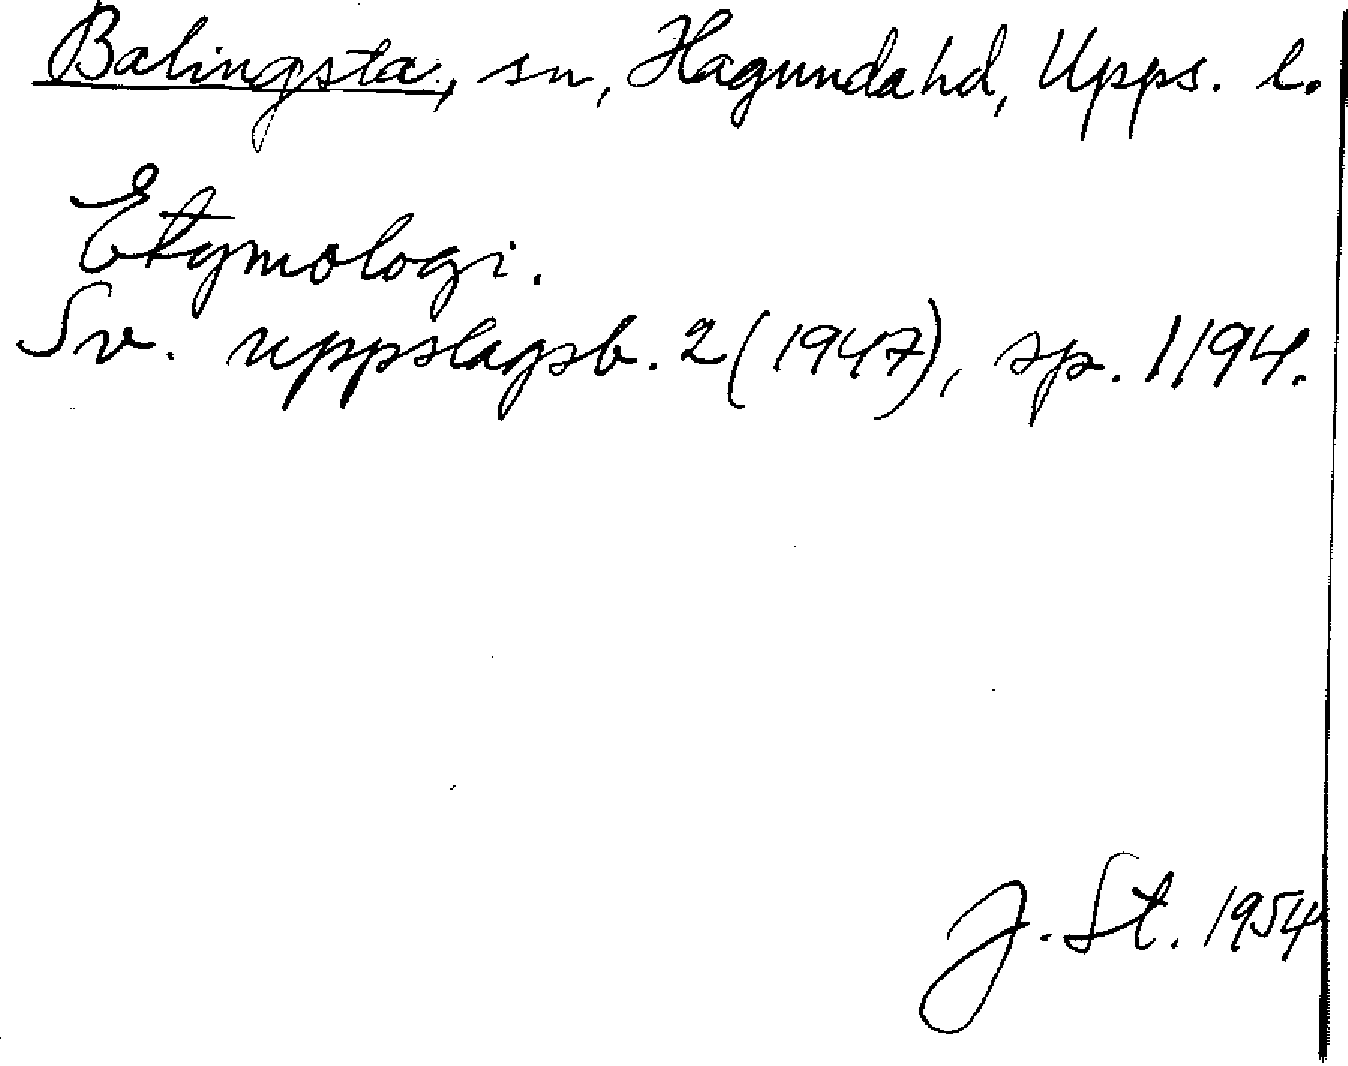 Balingsta, sn, Hagunda hd, Upps. l.
Etymologi.
Sv. uppslagsb. 2 (1947), sp. 1194.
J. St. 1954